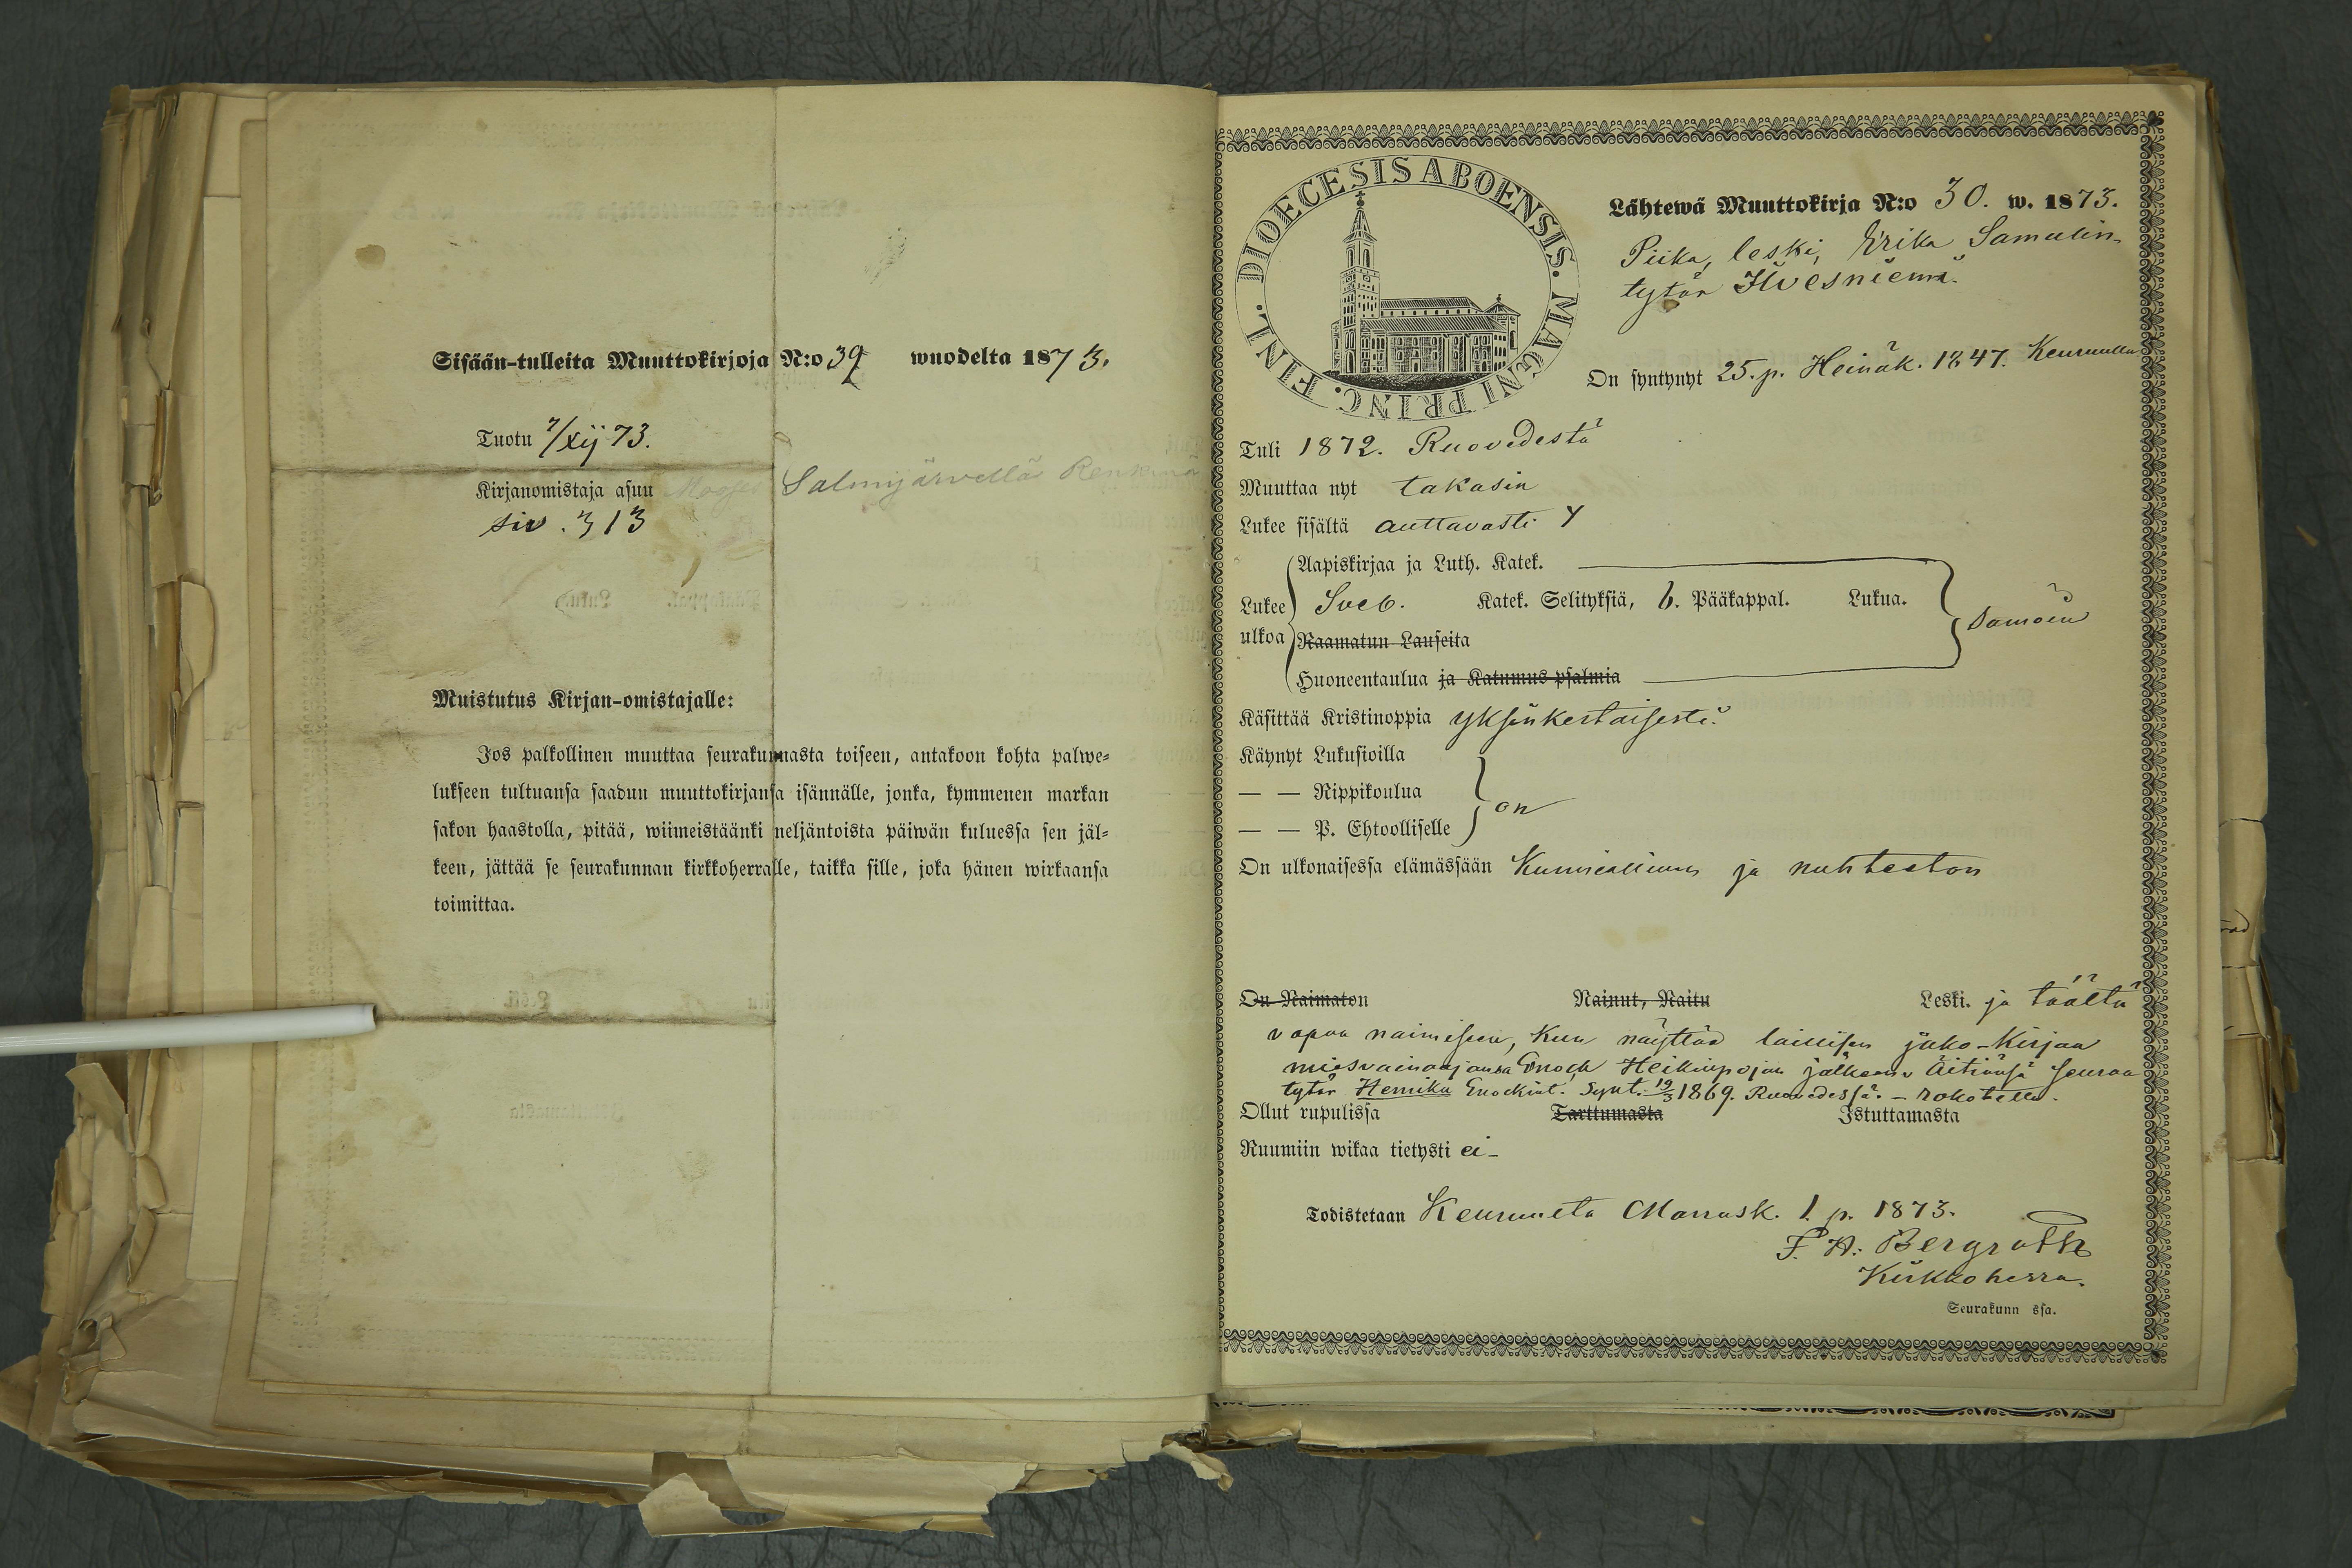 Sisään-tulleita Muuttokirjoja N:o 39 wuodelta 1873.
Tuotu 7/xij 73.
Kirjanomistaja asuu Salmijärvellä
siv. 313
Muistutus Kirjan-omistajalle:
Jos palkollinen muuttaa seurakunnasta toiseen, antakoon kohta palwe-
lukseen tultuansa saadun muuttokirjansa isännälle, jonka, kymmenen markan
sakon haastolla, pitää, wiimeistäänki neljäntoista päiwän kuluessa sen jäl-
keen, jättää se seurakunnan kirkkoherralle, taikka sille, joka hänen wirkaansa
toimittaa.
FINL. DIOECESIS ABOENSIS. MAGNI PRINC.
Lähtewä Muuttokirja N:o 30. w. 1873.
Piika, leski, Erika Samulin
tytär Ilvesniemi.
On syntynyt 25. p. Heinäk. 1847. Keuruulla
Tuli 1872. Ruovedestä
Muuttaa nyt takasin
Lukee sisältä auttavasti
Aapiskirjaa ja Luth. Katek.
Lukee ulkoa Sveb. Katek. Selityksiä, 6. Pääkappal. Lukua. samoin
Raamatun Lauseita
Huoneentaulua ja Katumus-psalmia
Käsittää Kristinoppia yksinkertaisesti
Käynyt Lukusioilla
— — Rippikoulua on
— — P. Ehtoolliselle
On ulkonaisessa elämässään Kunniallinen ja nuhteeton
On Naimaton Nainut, Naitu Leski. ja täältä
vapaa naimiseen, kun näyttää laillisen jako-kirjan
miesvainajansa Enoch Heikinpojan jälkeen. Äitiänsä seuraa
tytär Hemika Enockint. Synt. 19/3 1869. Ruovedessä. - rokotettu.
Ollut rupulissa Tarttumasta Istuttamasta
Ruumiin wikaa tietysti ei -
Todistetaan Keuruulta Marrask. 1 p. 1873.
F. H. Bergroth
Kirkkoherra.
Seurakunn ssa.